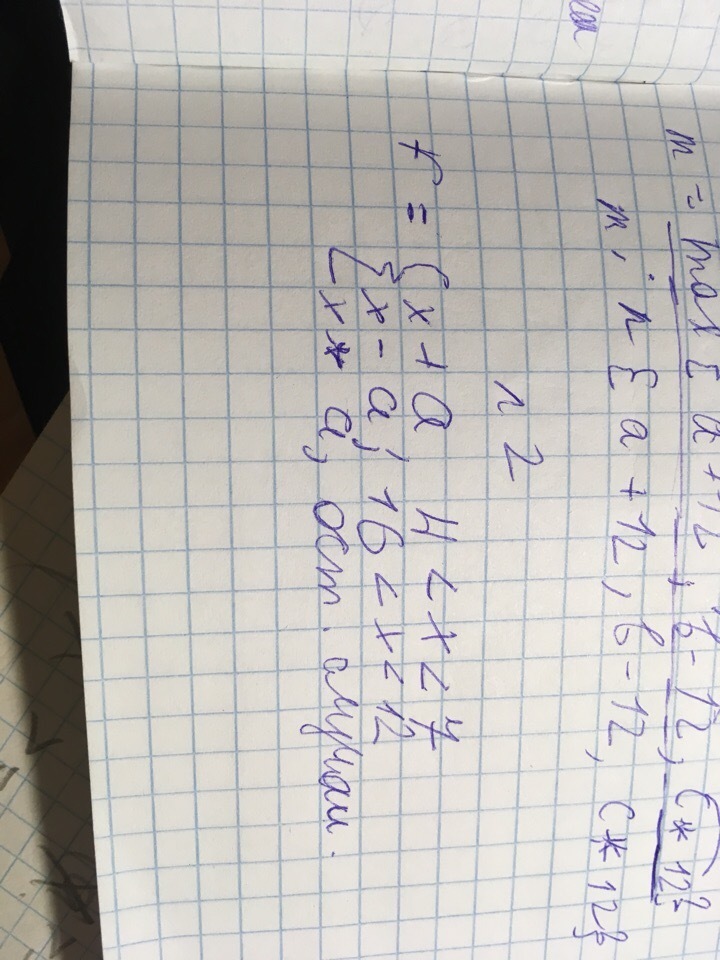 m = max { a+12, b-12, c*12}
m, n { a+12, b-12, c*12}
n 2
f = { x+a 4<x<7
x-a; 16<x<12
x*a; ост. случаи.